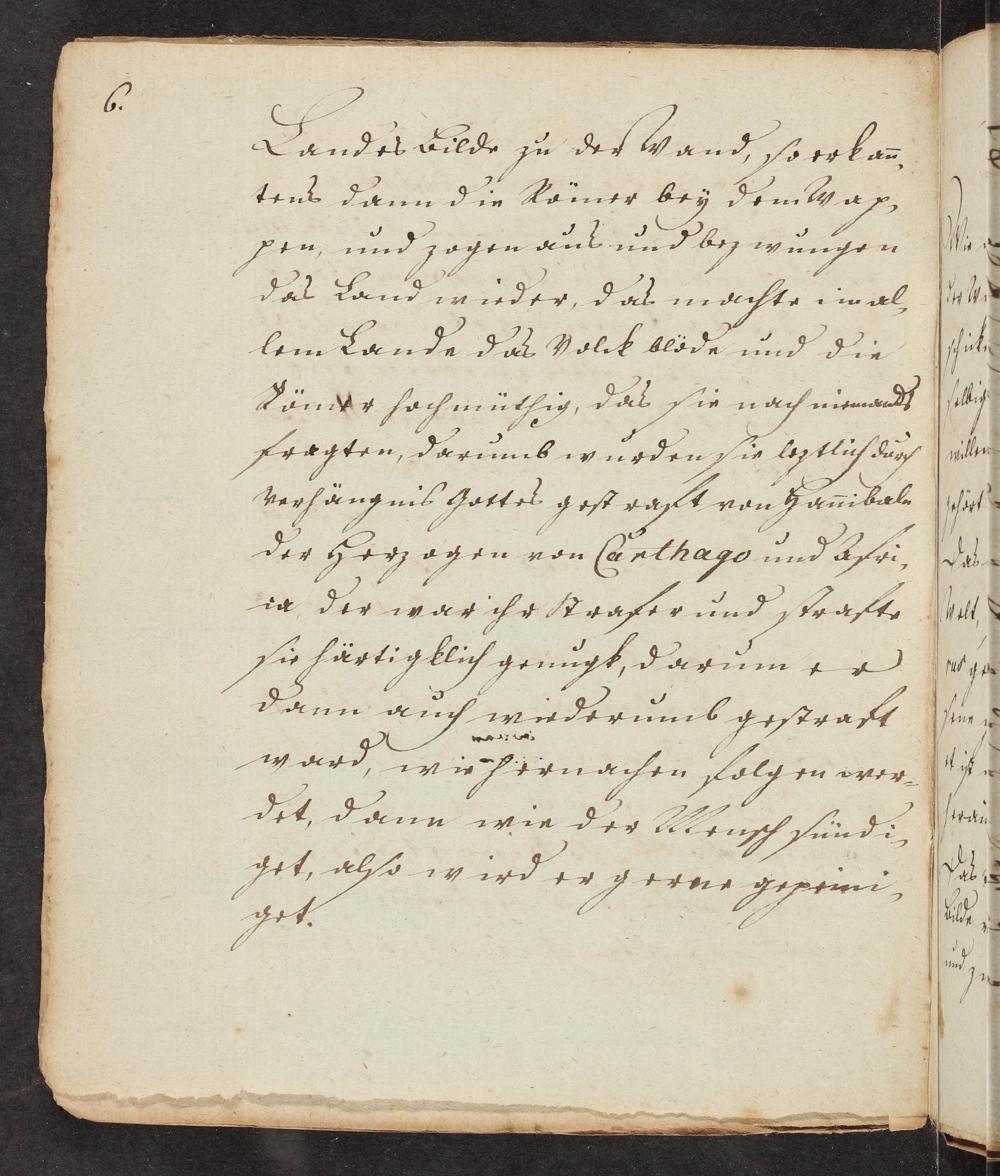 6.
Landes Bilde zu der Wand, so erkan̄,
tens dann die Römer bey dem Wap,
pen, und zogen aus und bezwungen
das Land wieder, das machte in al,
lem Lande das Volck blöde und die
Römer hochmüthig, das sie nach niemands
fragten, darumb wurden sie leztlich durch
Verhängnis Gottes gestraft von Han̄ibaln
der Herzogen von Carthago und Afri,
ca, der war ihr Strafer und strafte
sie härtigklich genugk, darum er
dann auch wiederumb gestraft
ward, wie hiernachen folgen wer=
det, dann wie der Mensch sündi,
get, also wird er gerne gepeini,
get.